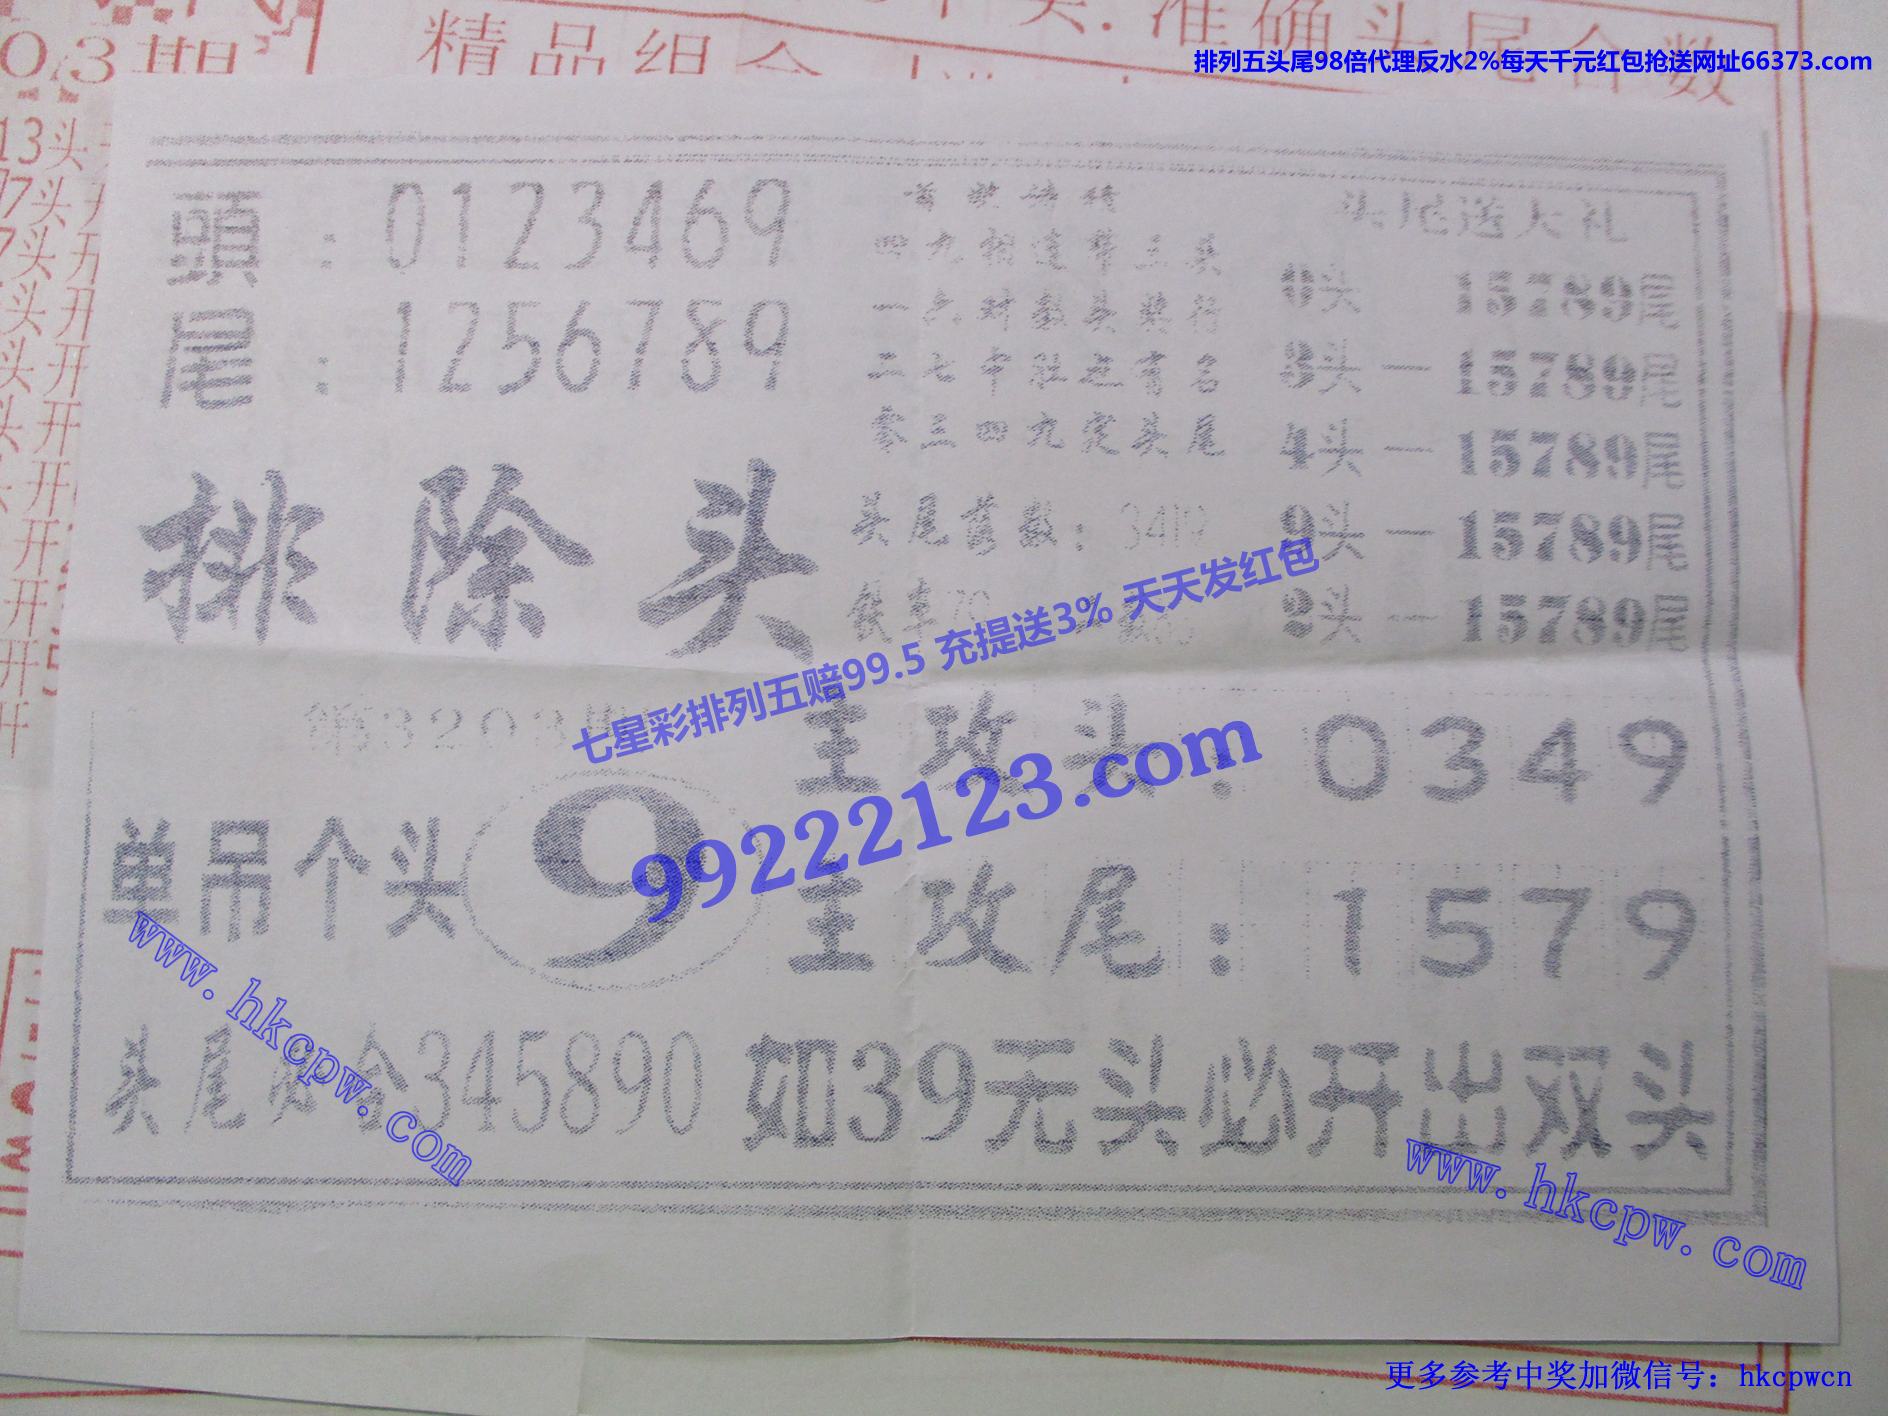 排列五头尾98倍代理反水2%每天千元红包抢送网址66373.com
精品组合
准确头尾合数
03期
13头
7头
7头 开
头 开
头 开
头 开
开
开
开
开5
开
頭：0123469
尾：1256789
排除头
四九相连第三条
二七中肚立有名
零三四九定头尾
头尾
铁率
头尾送大礼
0头 15789尾
3头一15789尾
4头一15789尾
9头一15789尾
2头一15789尾
七星彩排列五赔99.5 充提送3% 天天发红包
99222123.com
第3203期
单吊个头9
主攻头：0349
主攻尾：1579
头尾 合345890
如39无头必开出双头
www.hkcpw.com
www.hkcpw.com
更多参考中奖加微信号：hkcpwcn